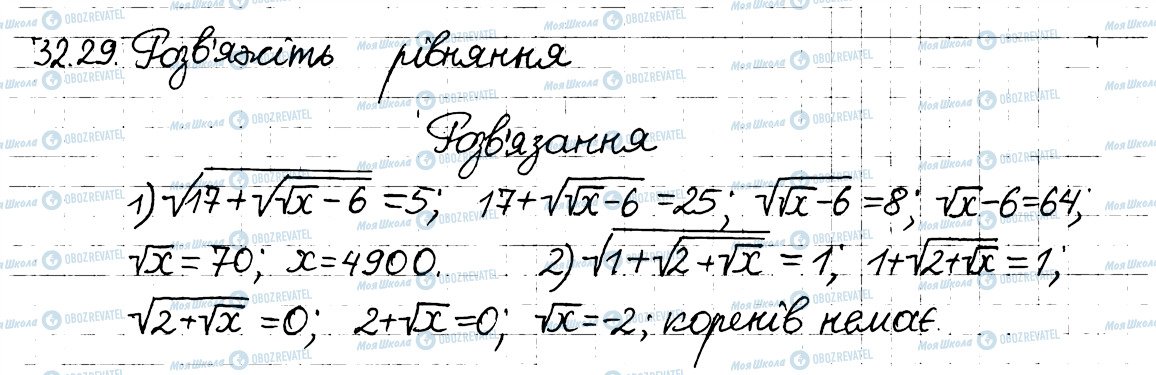 32.29. Розв'яжіть рівняння
Розв'язання
1) √(17+√(√x-6)) =5; 17+√(√x-6) =25; √(√x-6) =8; √x-6=64;
√x=70; x=4900. 2) √(1+√(2+√x)) =1; 1+√(2+√x) =1;
√(2+√x) =0; 2+√x=0; √x=-2; коренів немає.